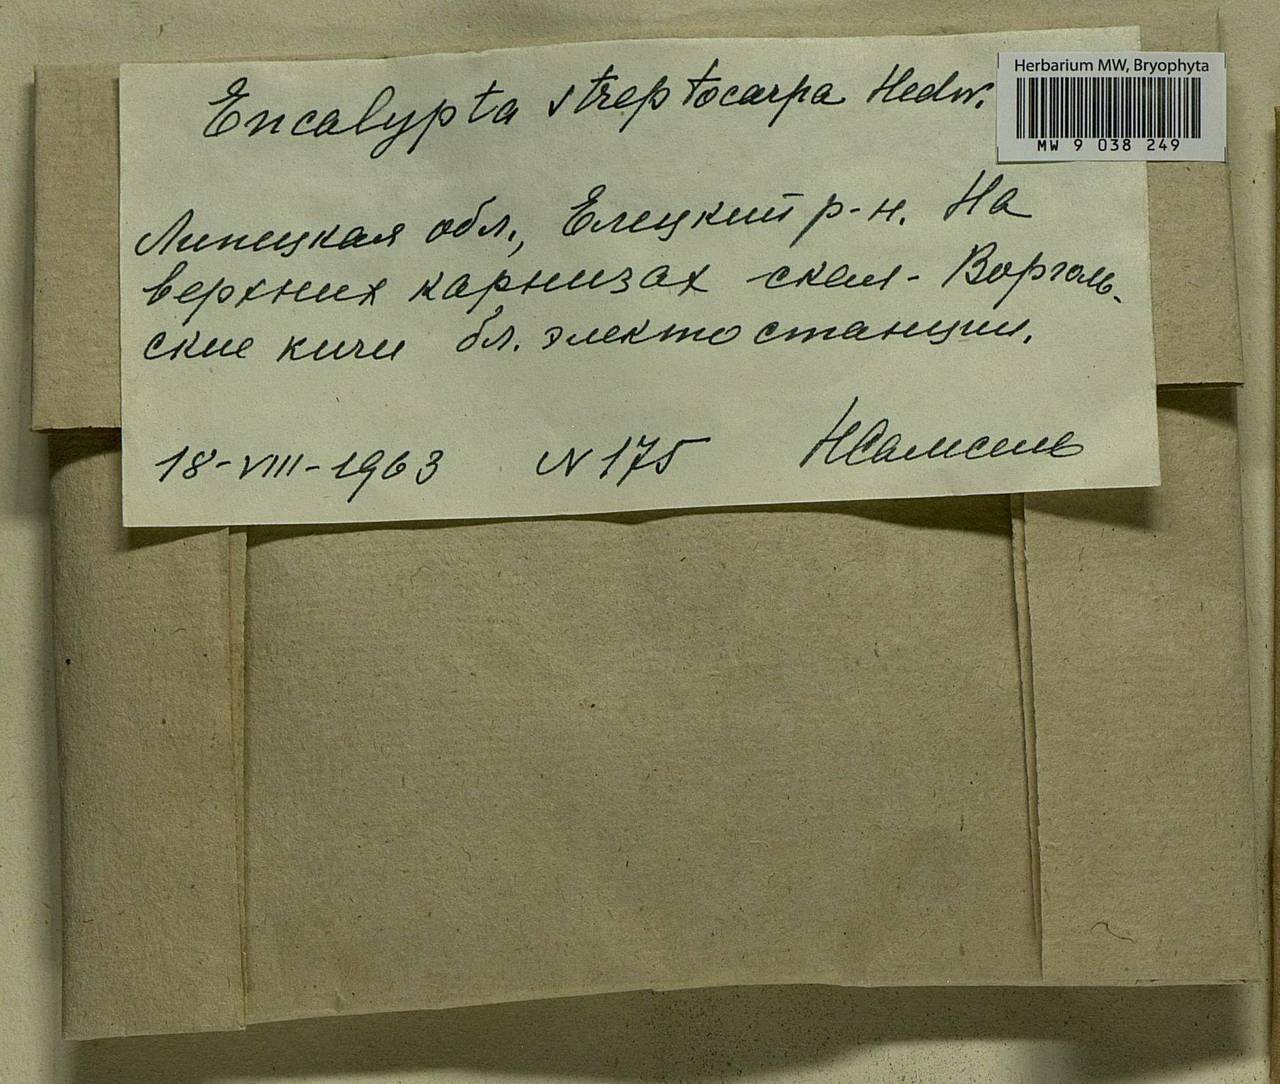 Herbarium MW, Bryophyta
MW 9 038 249
Encalypta streptocarpa Hedw.
Липецкая обл., Елецкий р-н. На
верхних карнизах скал- Воргол-
ские кичи бл. электостанции.
18-VIII-1963 N 175 НСамсель